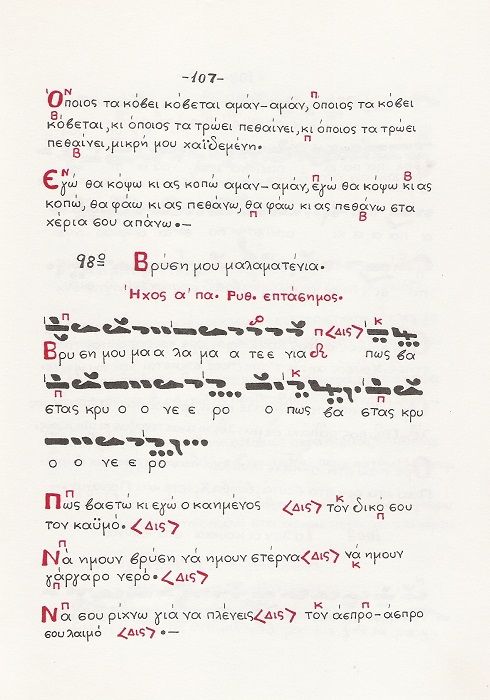 -107-
Όποιος τα κόβει κόβεται αμάν-αμάν, όποιος τα κόβει
κόβεται, κι όποιος τα τρώει πεθαίνει, κι όποιος τα τρώει
πεθαίνει, μικρή μου χαϊδεμένη.
Εγώ θα κόψω κι ας κοπώ αμάν-αμάν, εγώ θα κόψω κι ας
κοπώ, θα φάω κι ας πεθάνω, θα φάω κι ας πεθάνω στα
χέρια σου απάνω.-
98º Βρύση μου μαλαματένια.
Ήχος α' πα. Ρυθ. επτάσημος.
π <Δις> κ
Βρυ ση μου μα α λα μα α τε ε νια πως βα
στας κρυ ο ο νε ε ρο ο πως βα στας κρυ
ο ο νε ε ρο
Πώς βαστώ κι εγώ ο καημένος <Δις> τον δικό σου
τον καϋμό. <Δις>
Νά ημουν βρύση νά ημουν στέρνα <Δις> νά ημουν
γάργαρο νερό. <Δις>
Νά σου ρίχνω γιά να πλένεις <Δις> τον άσπρο-άσπρο
σου λαιμό <Δις> .-